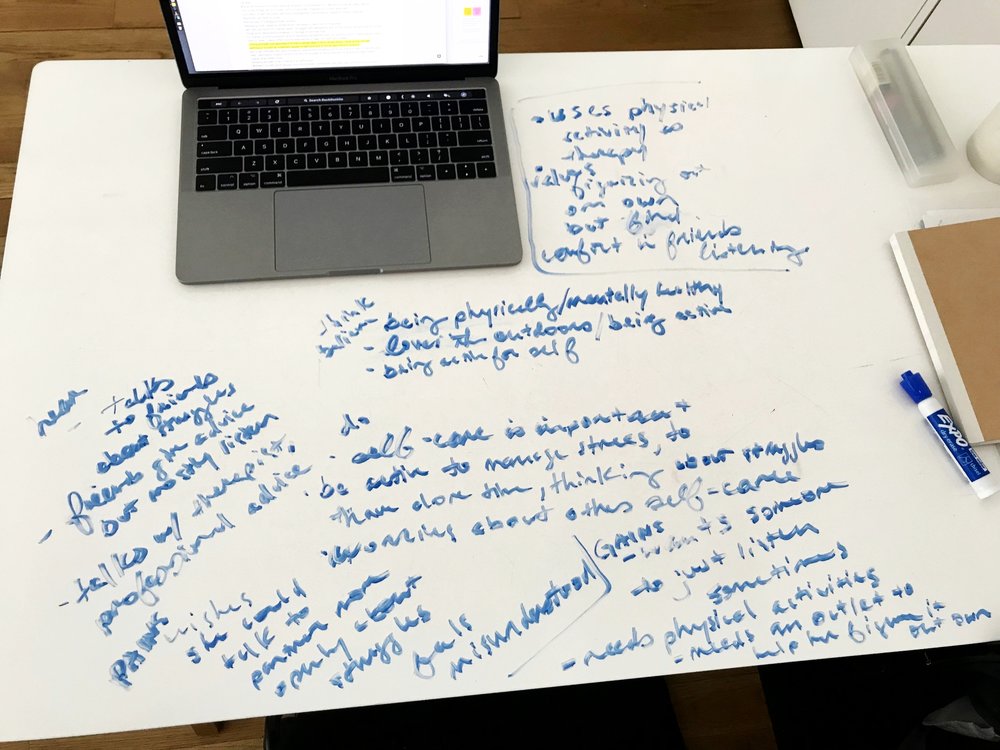 MacBook Pro
esc
Search
- uses physical
activity as
therapy
values
figuring out
on own
but find
comfort in friends
listening.
think
believe
- being physically/mentally healthy
- loves the outdoors/being active
- being active for self
hear
- talks
to friends
about struggles
- friends give advice
but mostly listen
- talks w/ therapist.
professional advice
do
· self-care is important
· be active to manage stress, to
have alone time, thinking about struggles
about others self-care
PAINS
wishes
she could
talk to
partner more
openly about
struggles
feels
misunderstood
GAINS
- wants someone
to just listen
sometimes
- needs physical activities
- needs an outlet to
help her figure it
out own
EXPO